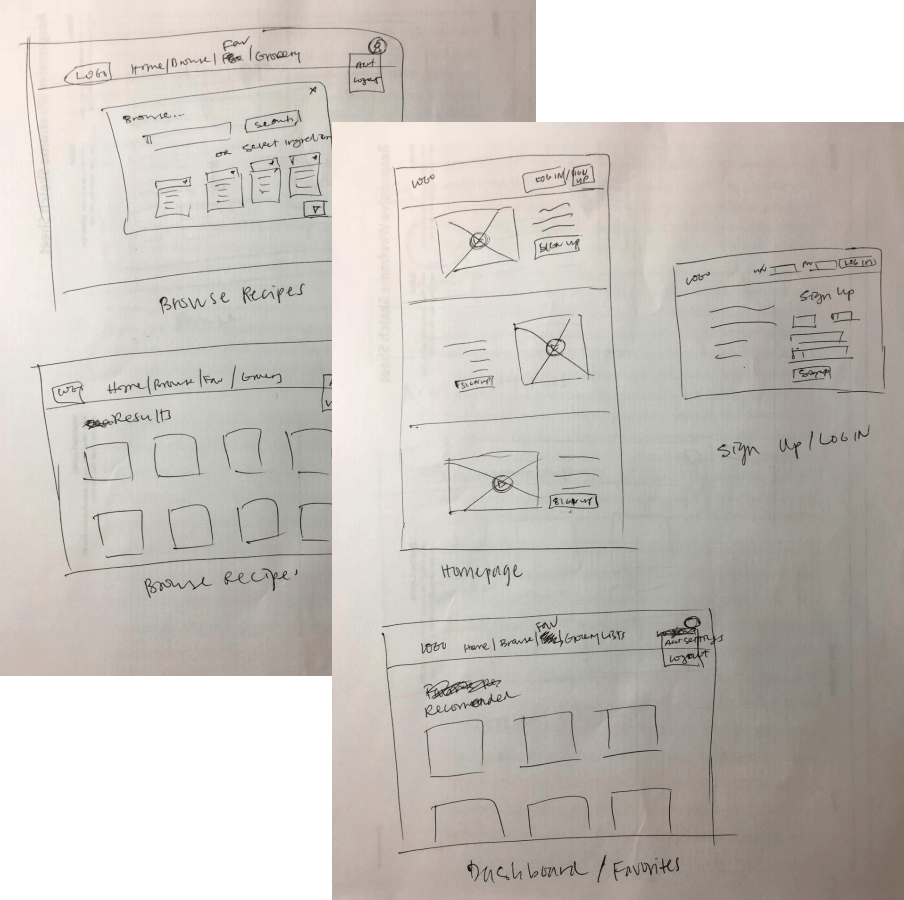 Fav
LOGO Home/Browse/ /Grocery
Acct
Logout
x
Browse...
Search
OR Select ingredien
Browse Recipes
LOGO Home/Browse/Fav/Grocery
Results
Browse Recipes
LOGO LOG IN/SIGN UP
SIGN UP
SIGN UP
SIGN UP
Homepage
LOGO UN PW LOG IN
Sign Up
Signup
Sign Up/LOGIN
Fav
LOGO Home/Browse/ /Grocery Lists
Acct Settings
Logout
Recomended
Dashboard/Favorites